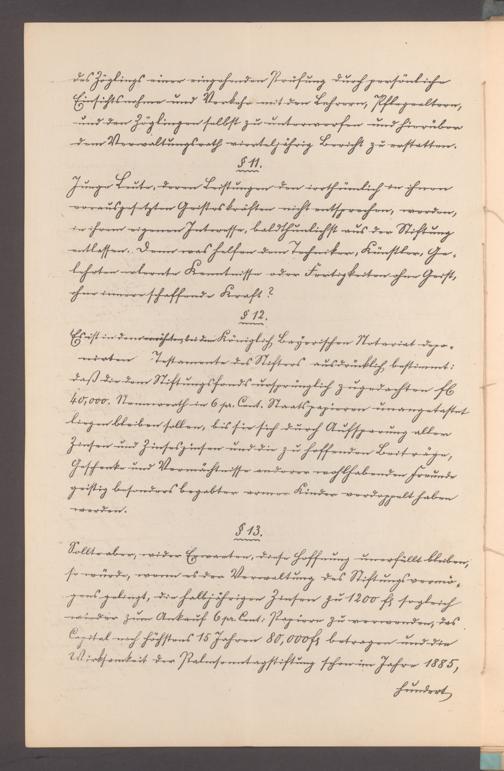 des Zöglings einer eingehenden Prüfung durch persönliche
Einsichtsnahme und Verkehr mit den Lehrern, Pflegeeltern,
und den Zöglingen selbst zu unterwerfen und hierüber
dem Verwaltungsrath vierteljährig Bericht zu erstatten.
§ 11.
Junge Leute, deren Leistungen den irrthümlich in ihnen
vorausgesetzten Geisteskräften nicht entsprechen, werden,
in ihrem eigenen Interesse, baldthunlichst aus der Stiftung
entlassen. Denn was helfen dem Techniker, Künstler, Ge-
lehrten erlernte Kenntnisse oder Fertigkeiten ohne Geist,
ohne innere schaffende Kraft?
§ 12.
Es ist in dem Königlich Bayerischen Notariat depo-
nirten Testamente des Stifters ausdrücklich bestimmt:
daß die dem Stiftungsfonds ursprünglich zugedachten fl
40,000. Nennwerth in 6 pr. Cent. Staatspapieren unangetastet
liegen bleiben sollen, bis sie sich durch Aufsparung aller
Zinsen und Zinseszinsen und die zu hoffenden Beiträge,
Geschenke und Vermächtnisse anderer wohlhabenden Freunde
geistig besonders begabter armer Kinder verdoppelt haben
werden.
§ 13.
Sollte aber, wider Erwarten, diese Hoffnung unerfüllt bleiben,
so würde, wenn es der Verwaltung des Stiftungsvermö-
gens gelingt, die halbjährigen Zinsen zu 1200 fl sogleich
wieder zum Ankauf 6 pr. Cent. Papiere zu verwenden, das
Capital nach höchstens 15 Jahren 80,000 fl betragen und die
Wirksamkeit der Palmsonntagstiftung schon im Jahre 1885,
hundert